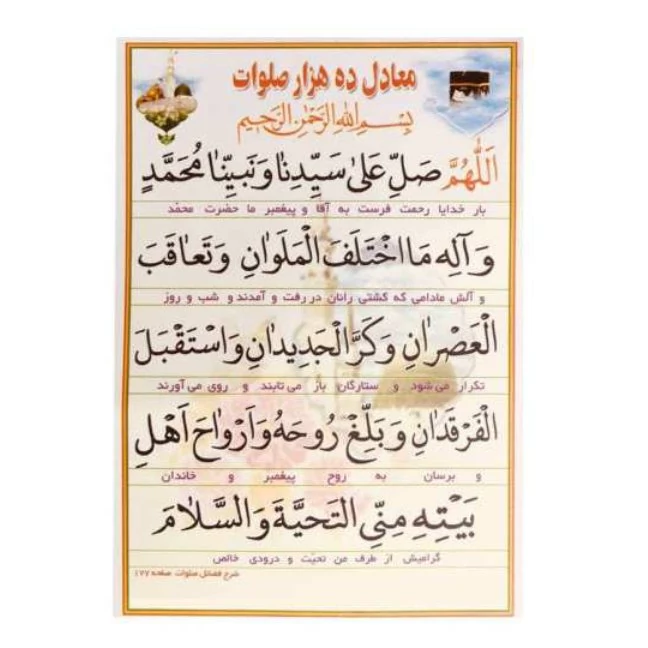 معادل ده هزار صلوات
بِسْمِ اللهِ الرَّحْمٰنِ الرَّحِیمِ
اَللّٰهُمَّ صَلِّ عَلیٰ سَیِّدِنٰا وَ نَبِیِّنٰا مُحَمَّدٍ
بار خدایا رحمت فرست به آقا و پیغمبر ما حضرت محمّد
وَ آلِهِ مَا اخْتَلَفَ الْمَلَوٰانِ وَ تَعٰاقَبَ
و آلش مادامی که گشتی رانان در رفت و آمدند و شب و روز
الْعَصْرٰانِ وَ کَرَّ الْجَدِیدٰانِ وَ اسْتَقْبَلَ
تکرار می شود و ستارگان باز می تابند و روی می آورند
الْفَرْقَدٰانِ وَ بَلِّغْ رُوحَهُ وَ اَرْوٰاحَ اَهْلِ
و برسان به روح پیغمبر و خاندان
بَیْتِهِ مِنِّی التَّحِیَّةَ وَ السَّلاٰمَ
گرامیش از طرف من تحیّت و درودی خالص
شرح فضائل صلوات صفحه ۱۲۷